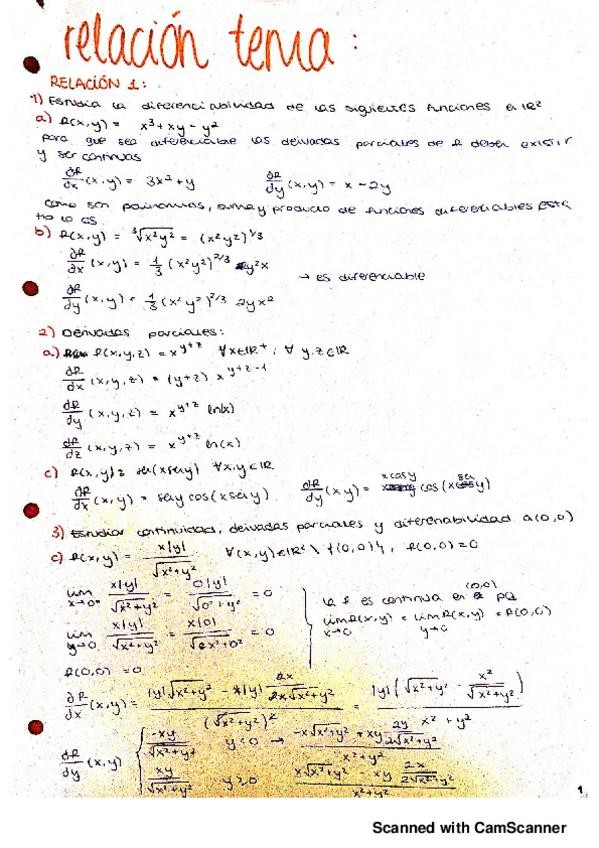 relación tema:
RELACIÓN 1:
1) Estudia la diferenciabilidad de las siguientes funciones en ℝ²
a) f(x,y) = x³ + xy - y²
para que sea diferenciable las derivadas parciales de f deben existir
y ser continuas
∂f/∂x (x,y) = 3x² + y    ∂f/∂y (x,y) = x - 2y
como son polinomios, suma y producto de funciones diferenciables esta
lo es.
b) f(x,y) = ∛(x²y²) = (x²y²)^1/3
∂f/∂x (x,y) = 1/3 (x²y²)^2/3 2y²x
→ es diferenciable
∂f/∂y (x,y) = 1/3 (x²y²)^2/3 2yx²
2) Derivadas parciales:
a) f(x,y,z) = x^(y+z) ∀x∈ℝ⁺, ∀ y,z∈ℝ
∂f/∂x (x,y,z) = (y+z) x^(y+z-1)
∂f/∂y (x,y,z) = x^(y+z) ln(x)
∂f/∂z (x,y,z) = x^(y+z) ln(x)
c) f(x,y)= sen(x sen y) ∀x,y∈ℝ
∂f/∂x (x,y) = sen y cos(x sen y)    ∂f/∂y (x,y) = x cos y cos(x sen y)
3) Estudiar continuidad, derivadas parciales y diferenabilidad a (0,0)
c) f(x,y) = x|y| / √(x²+y²)    ∀(x,y)∈ℝ² \ {(0,0)}, f(0,0)=0
lim x→0 x|y| / √(x²+y²) = 0|y| / √(0²+y²) = 0
la f es continua en (0,0) pq
lim x→0 f(x,y) = lim y→0 f(x,y) = f(0,0)
lim y→0 x|y| / √(x²+y²) = x|0| / √(x²+0²) = 0
f(0,0) = 0
∂f/∂x (x,y) = (|y|√(x²+y²) - x|y| 2x / 2√(x²+y²)) / (√(x²+y²))² = |y| (√(x²+y²) - x² / √(x²+y²)) / x²+y²
∂f/∂y (x,y) { -xy / √(x²+y²)  y<0 → (-x√(x²+y²) + xy 2y / 2√(x²+y²)) / x²+y²
xy / √(x²+y²)  y≥0  (x√(x²+y²) - xy 2x / 2√(x²+y²)) / x²+y²
1
Scanned with CamScanner